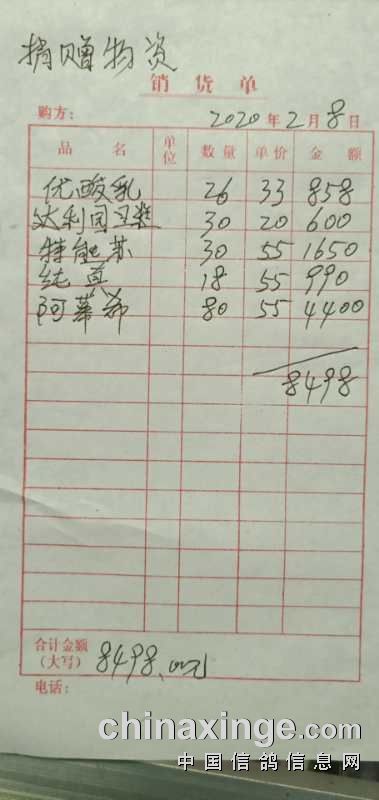 捐赠物资
销货单
购方： 2020年2月8日
品名 单位 数量 单价 金额
优酸乳 26 33 858
达利园豆浆 30 20 600
特能苏 30 55 1650
纯真 18 55 990
阿慕希 80 55 4400
8498
合计金额（大写） 8498.00元
电话：
chinaxinge.com
中国信鸽信息网